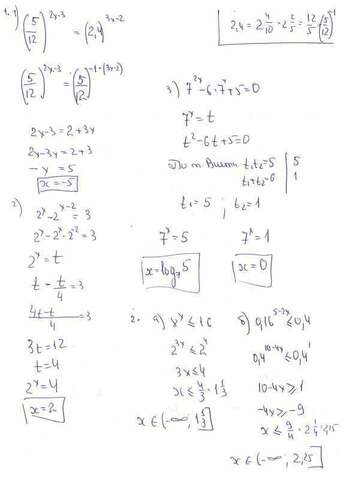 1. 1) (5/12)^(2x-3) = (2,4)^(3x-2)
2,4 = 2 4/10 = 2 2/5 = 12/5 = (5/12)^-1
(5/12)^(2x-3) = (5/12)^(-1·(3x-2))
2x-3=2+3x
2x-3x=2+3
-x=5
x=-5
2) 2^x-2^(x-2)=3
2^x-2^x·2^-2=3
2^x=t
t-t/4=3
(4t-t)/4=3
3t=12
t=4
2^x=4
x=2
3) 7^(2x)-6·7^x+5=0
7^x=t
t²-6t+5=0
По т. Виета t₁t₂=5 | 5
t₁+t₂=6 | 1
t₁=5 ; t₂=1
7^x=5 7^x=1
x=log₇5 x=0
2. a) 8^x ≤ 16
2^(3x) ≤ 2^4
3x ≤ 4
x ≤ 4/3 = 1 1/3
x ∈ (-∞, 1 1/3]
б) 0,16^(5-2x) ≤ 0,4
0,4^(10-4x) ≤ 0,4^1
10-4x ≥ 1
-4x ≥ -9
x ≤ 9/4 = 2 1/4 = 2,25
x ∈ (-∞, 2,25]